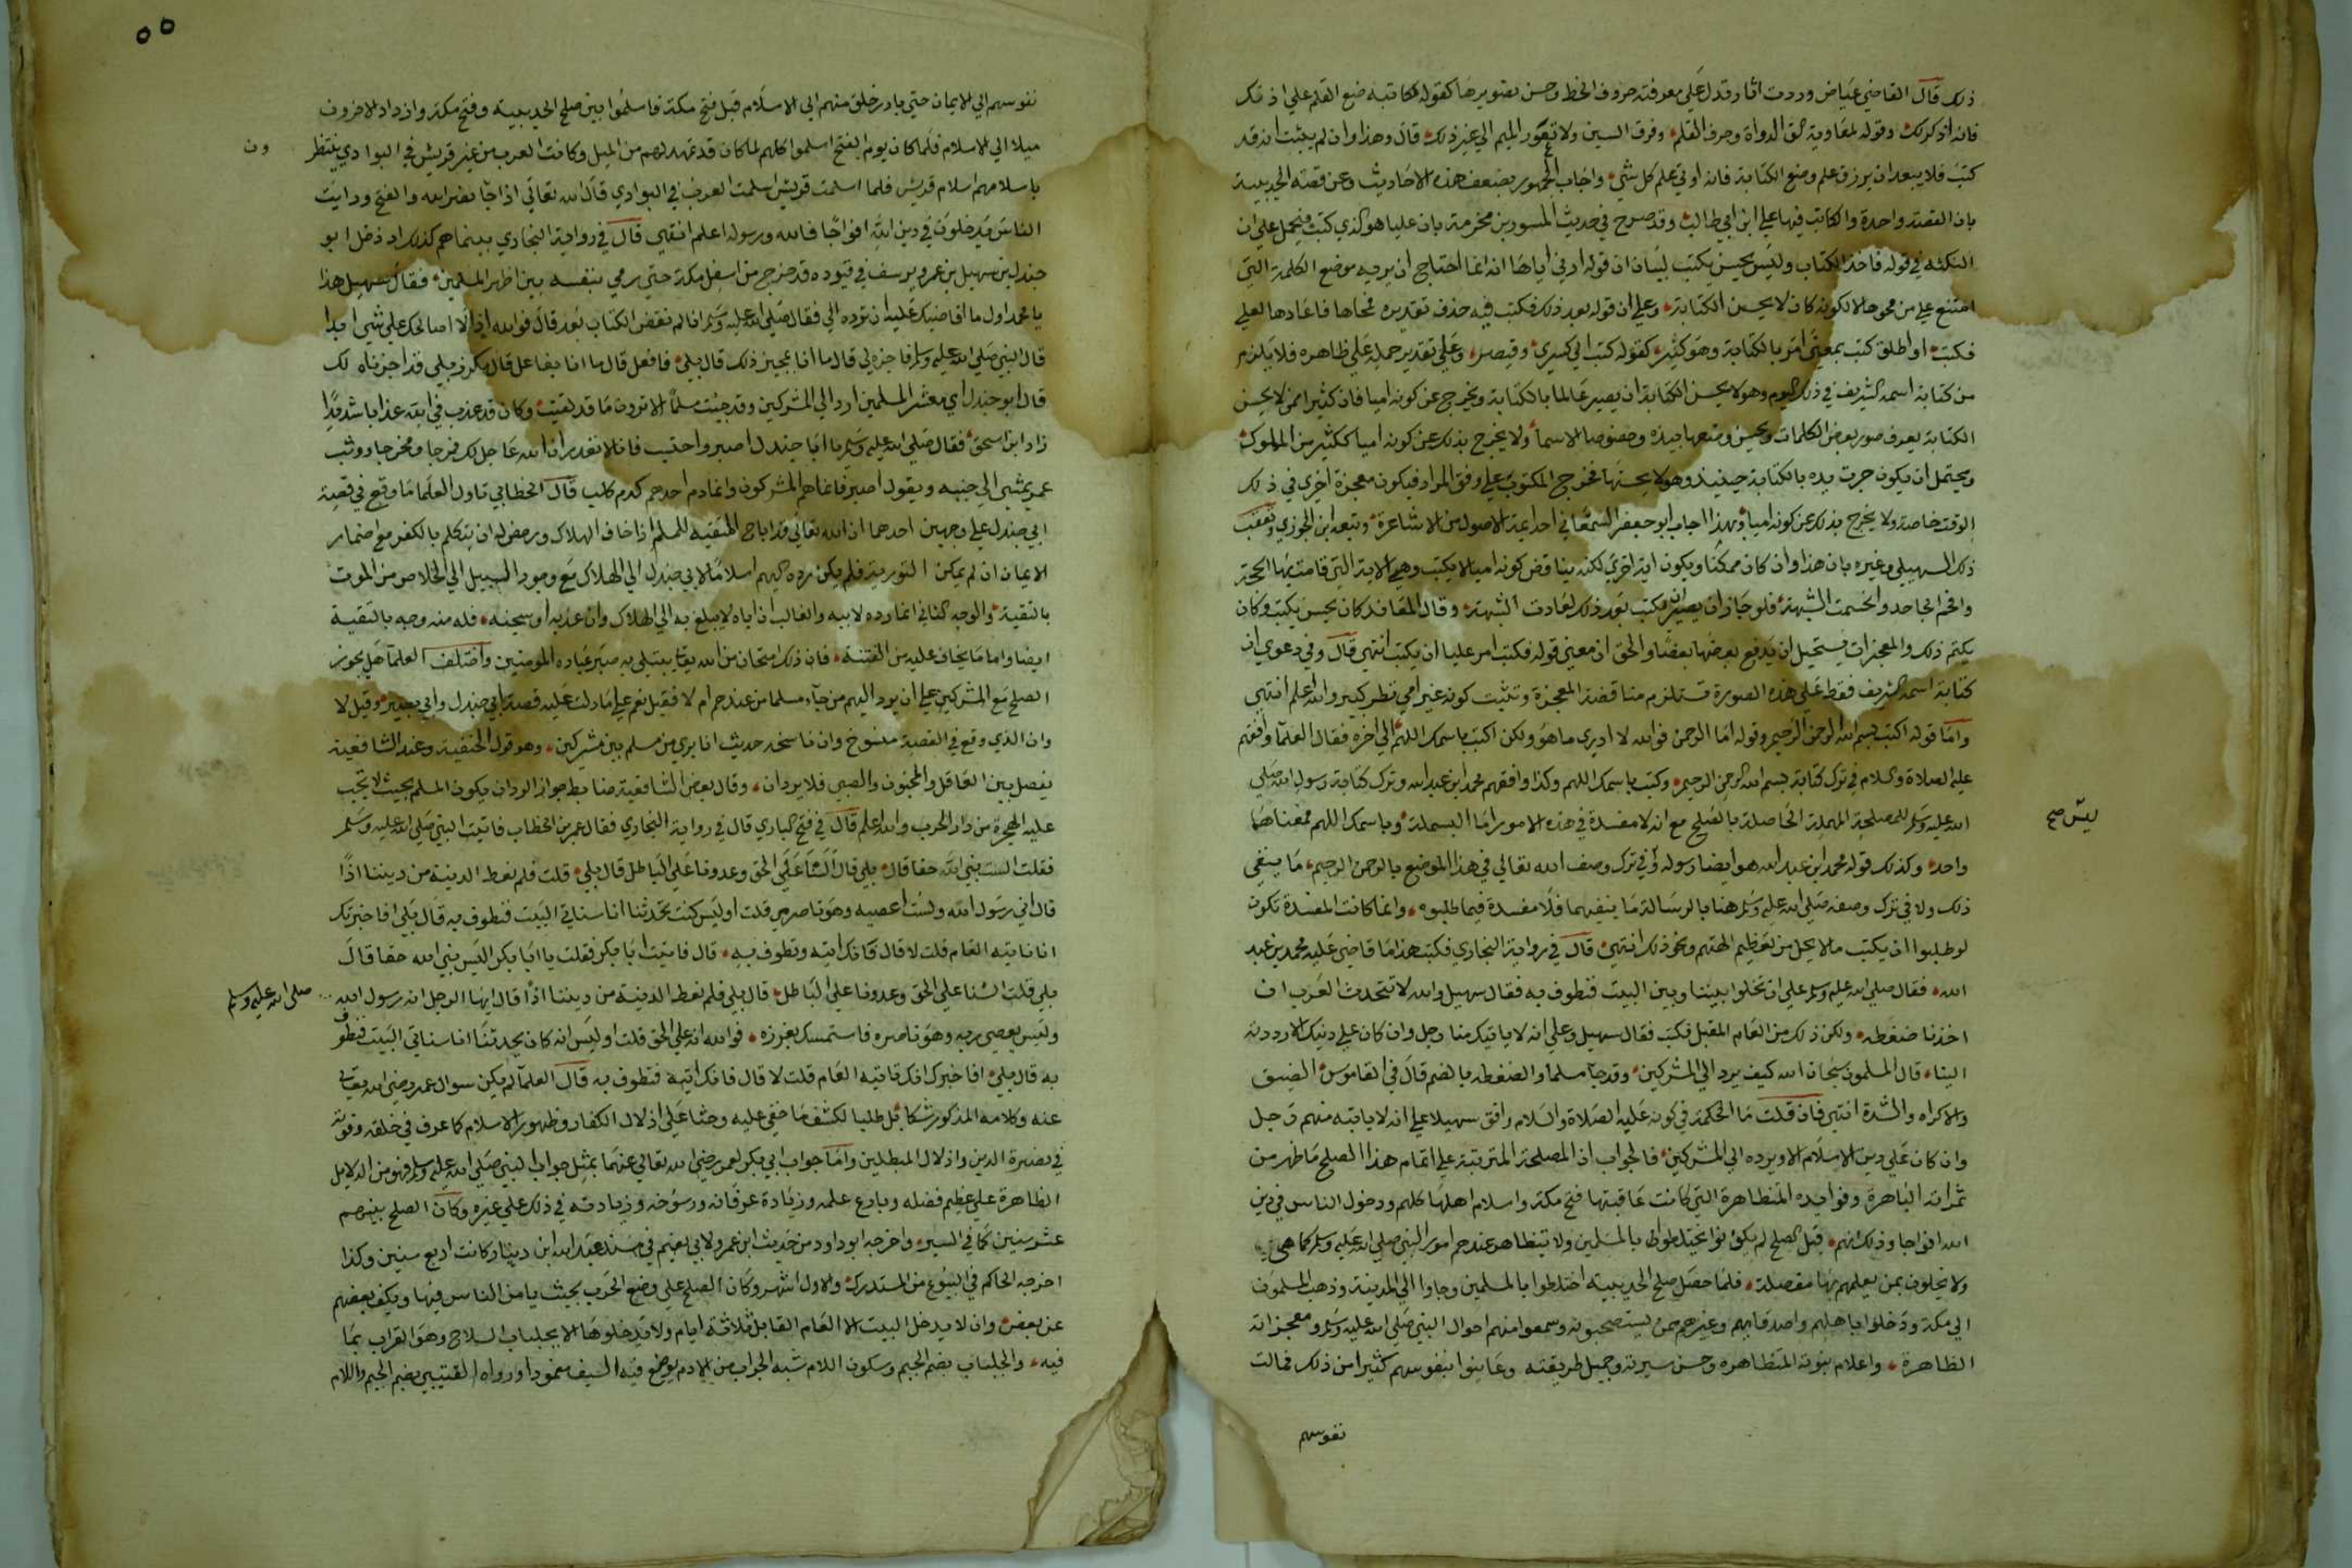 ذلك قال القاضي عياض وردت اثار تدل على معرفته حروف الخط وحسن تصويرها كقوله لكاتبه ضع القلم علي اذنك
فانه اذكر لك وقوله لمعاوية الق الدواة وحرف القلم وفرق السين ولا تعور الميم الي غير ذلك قال وهذا وان لم يثبت انه قد
كتب فلا يبعد ان يرزق علم وضع الكتابة فانه اوتي علم كل شي واجاب الجمهور بضعف هذه الاحاديث وعن قصة الحديبية
بان القصة واحدة والكاتب فيها علي ابن ابي طالب وقد صرح في حديث المسور بن مخرمة بان عليا هو الذي كتب فيحمل علي ان
النكتة في قوله فاخذ الكتاب وليس يحسن يكتب لبيان ان قوله ارني اياها انه انما احتاج ان يريه موضع الكلمة التي
امتنع علي من محوها الا لكونه كان لا يحسن الكتابة وعلي ان قوله بعد ذلك فكتب فيه حذف تقديره فمحاها فاعادها لعلي
فكتب او اطلق كتب بمعني امر بالكتابة وهو كثير كقوله كتب الي كسري وقيصر وعلي تقدير حمله علي ظاهره فلا يلزم
من كتابة اسمه الشريف في ذلك اليوم وهو لا يحسن الكتابة ان يصير عالما بالكتابة ويخرج عن كونه اميا فان كثيرا ممن لا يحسن
الكتابة يعرف صور بعض الكلمات ويحسن وضعها بيده وخصوصا الاسما ولا يخرج بذلك عن كونه اميا ككثير من الملوك
ويحتمل ان يكون جرت يده بالكتابة حينئذ وهو لا يحسنها فخرج المكتوب علي وفق المراد فيكون معجزة اخري في ذلك
الوقت خاصة ولا يخرج بذلك عن كونه اميا وبهذا اجاب ابو جعفر السمناني احد ائمة الاصول من الاشاعرة وتبعه ابن الجوزي وتعقب
ذلك السهيلي وغيره بان هذا وان كان ممكنا ويكون اية اخري لكنه يناقض كونه اميا لا يكتب وهي الاية التي قامت بها الحجة
وافحم الجاحد وانحسمت الشبهة فلو جاز ان يصير يكتب بعد ذلك لعادت الشبهة وقال المعاند كان يحسن يكتب وكان
يكتم ذلك والمعجزات يستحيل ان يدفع بعضها بعضا والحق ان معني قوله فكتب امر عليا ان يكتب انتهي قال وفي دعوي ان
كتابة اسمه الشريف فقط علي هذه الصورة تستلزم مناقضة المعجزة وتثبت كونه غير امي نظر كبير والله اعلم انتهي
واما قوله اكتب بسم الله الرحمن الرحيم وقوله اما الرحمن فوالله لا ادري ما هو ولكن اكتب باسمك اللهم الي اخره فقال العلما وافقهم
عليه الصلاة والسلام في ترك كتابة بسم الله الرحمن الرحيم وكتب باسمك اللهم وكذا وافقهم محمد ابن عبد الله وترك كتابة رسول الله صلي
الله عليه وسلم للمصلحة المهمة الحاصلة بالصلح مع انه لا مفسدة في هذه الامور اما البسملة وباسمك اللهم فمعناهما
ليس صح
واحد وكذلك قوله محمد ابن عبد الله هو ايضا رسوله وفي ترك وصف الله تعالي في هذا الموضع بالرحمن الرحيم ما ينفي
ذلك ولا في ترك وصفه صلي الله عليه وسلم هنا بالرسالة ما ينفيهما فلا مفسدة فيما طلبوه وانما كانت المفسدة تكون
لو طلبوا ان يكتب ما لا يحل من تعظيم الهتهم ونحو ذلك انتهي قال في رواية البخاري فكتب هذا ما قاضي عليه محمد بن عبد
الله فقال صلي الله عليه وسلم علي ان تخلوا بيننا وبين البيت فنطوف به فقال سهيل والله لا تتحدث العرب ان
اخذنا ضغطه ولكن ذلك من العام المقبل فكتب فقال سهيل وعلي انه لا ياتيك منا رجل وان كان علي دينك الا رددته
الينا قال المسلمون سبحان الله كيف يرد الي المشركين وقد جا مسلما والضغطة بالضم قال في القاموس الضيق
والاكراه والشدة انتهي فان قلت ما الحكمة في كونه عليه الصلاة والسلام وافق سهيلا علي انه لا ياتيه منهم رجل
وان كان علي دين الاسلام الا ويرده الي المشركين فالجواب ان المصلحة المترتبة علي اتمام هذا الصلح ما ظهر من
ثمراته الباهرة وفوايده المتظاهرة التي كانت عاقبتها فتح مكة واسلام اهلها كلهم ودخول الناس في دين
الله افواجا وذلك انهم قبل الصلح لم يكونوا يختلطون بالمسلمين ولا تتظاهر عندهم امور النبي صلي الله عليه وسلم كما هي
ولا يخلون بمن يعلمهم بها مفصلة فلما حصل صلح الحديبية اختلطوا بالمسلمين وجاوا الي المدينة وذهب المسلمون
الي مكة ودخلوا باهلهم واصدقائهم وغيرهم ممن يستصحبونه وسمعوا منهم احوال النبي صلي الله عليه وسلم ومعجزاته
الظاهرة واعلام نبوته المتظاهره وحسن سيرته وجميل طريقته وعاينوا بنفوسهم كثيرا من ذلك فمالت
نفوسهم
٥٥
نفوسهم الي الايمان حتي بادر خلق منهم الي الاسلام قبل فتح مكة فاسلموا بين صلح الحديبية وفتح مكة وازداد الاخرون
ميلا الي الاسلام فلما كان يوم الفتح اسلموا كلهم لما كان قد تمهد لهم من الميل وكانت العرب من غير قريش في البوادي ينتظر
ون
باسلامهم اسلام قريش فلما اسلمت قريش اسلمت العرب في البوادي قال الله تعالي اذا جا نصر الله والفتح ورايت
الناس يدخلون في دين الله افواجا فالله ورسوله اعلم انتهي قال في رواية البخاري بينما هم كذلك اذ دخل ابو
جندل بن سهيل بن عمرو يرسف في قيوده قد خرج من اسفل مكة حتي رمي بنفسه بين اظهر المسلمين فقال سهيل هذا
يا محمد اول ما اقاضيك عليه ان ترده الي فقال صلي الله عليه وسلم انا لم نقض الكتاب بعد قال فوالله اذا لا اصالحك علي شي ابدا
قال النبي صلي الله عليه وسلم فاجزه لي قال ما انا بمجيز ذلك قال بلي فافعل قال ما انا بفاعل قال مكرز بلي قد اجزناه لك
قال ابو جندل اي معشر المسلمين ارد الي المشركين وقد جئت مسلما الا ترون ما قد لقيت وكان قد عذب في الله عذابا شديدا
زاد ابن اسحق فقال صلي الله عليه وسلم يا ابا جندل اصبر واحتسب فانا لا نغدر ان الله جاعل لك فرجا ومخرجا ووثب
عمر يمشي الي جنبه ويقول اصبر فانما هم المشركون وانما دم احدهم كدم كلب قال الخطابي تاول العلما ما وقع في قصة
ابي جندل علي وجهين احدهما ان الله تعالي قد اباح التقية للمسلم اذا خاف الهلاك ورخص له ان يتكلم بالكفر مع اضمار
الايمان ان لم يمكن التورية فلم يكن رده اليهم اسلاما لابي جندل الي الهلاك مع وجود السبيل الي الخلاص من الموت
بالتقية والوجه الثاني انما رده لابيه والغالب ان اباه لا يبلغ به الي الهلاك وان عذبه او سجنه فله مندوحه بالتقية
ايضا واما ما يخاف عليه من الفتنة فان ذلك امتحان من الله تعالي يبتلي به صبر عباده المومنين واختلف العلما هل يجوز
الصلح مع المشركين علي ان يرد اليهم من جاء مسلما من عندهم ام لا فقيل نعم علي ما دلت عليه قصة ابي جندل وابي بصير وقيل لا
وان الذي وقع في القصة منسوخ وان ناسخه حديث انا بري من مسلم بين مشركين وهو قول الحنفية وعند الشافعية
يفصل بين العاقل والمجنون والصبي فلا يردان وقال بعض الشافعية ضابط جواز الرد ان يكون المسلم بحيث لا تجب
عليه الهجرة من دار الحرب والله اعلم قال في فتح الباري قال في رواية البخاري فقال عمر بن الخطاب فاتيت النبي صلي الله عليه وسلم
فقلت الست نبي الله حقا قال بلي قال السنا علي الحق وعدونا علي الباطل قال بلي قلت فلم نعط الدنية من ديننا اذا
قال اني رسول الله ولست اعصيه وهو ناصري قلت اوليس كنت تحدثنا انا سناتي البيت فنطوف به قال بلي افاخبرتك
انا ناتيه العام قلت لا قال فانك اتيه وتطوف به قال فاتيت ابا بكر فقلت يا ابا بكر اليس نبي الله حقا قال
بلي قلت السنا علي الحق وعدونا علي الباطل قال بلي فلم نعط الدنية من ديننا اذا قال ايها الرجل انه رسول الله
صلى الله عليه وسلم
وليس يعصي ربه وهو ناصره فاستمسك بغرزه فوالله انه علي الحق قلت اوليس انه كان يحدثنا انا سناتي البيت فنطوف
به قال بلي افاخبرك انك تاتيه العام قلت لا قال فانك اتيه فتطوف به قال العلما لم يكن سوال عمر رضي الله تعالي
عنه وكلامه المذكور شكا بل طلبا لكشف ما خفي عليه وحثا علي اذلال الكفار وظهور الاسلام كما عرف في خلقه وقوته
في نصرة الدين واذلال المبطلين واما جواب ابي بكر لعمر رضي الله تعالي عنهما بمثل جواب النبي صلي الله عليه وسلم فهو من الدلايل
الظاهرة علي عظيم فضله وبارع علمه وزيادة عرفانه ورسوخه وزيادته في ذلك علي غيره وكان الصلح بينهم
عشر سنين كما في السير واخرجه ابو داود من حديث ابن عمر ولابي نعيم في مسند عبد الله ابن دينار كانت اربع سنين وكذا
اخرجه الحاكم في البيوع من المستدرك والاول اشهر وكان الصلح علي وضع الحرب بحيث يامن الناس فيها ويكف بعضهم
عن بعض وان لا يدخل البيت الا العام القابل ثلاثة ايام ولا يدخلوها الا بجلباب السلاح وهو القراب بما
فيه والجلباب بضم الجيم وسكون اللام شبه الجراب من الادم يوضع فيه السيف مغمودا ورواه القتيبي بضم الجيم واللام